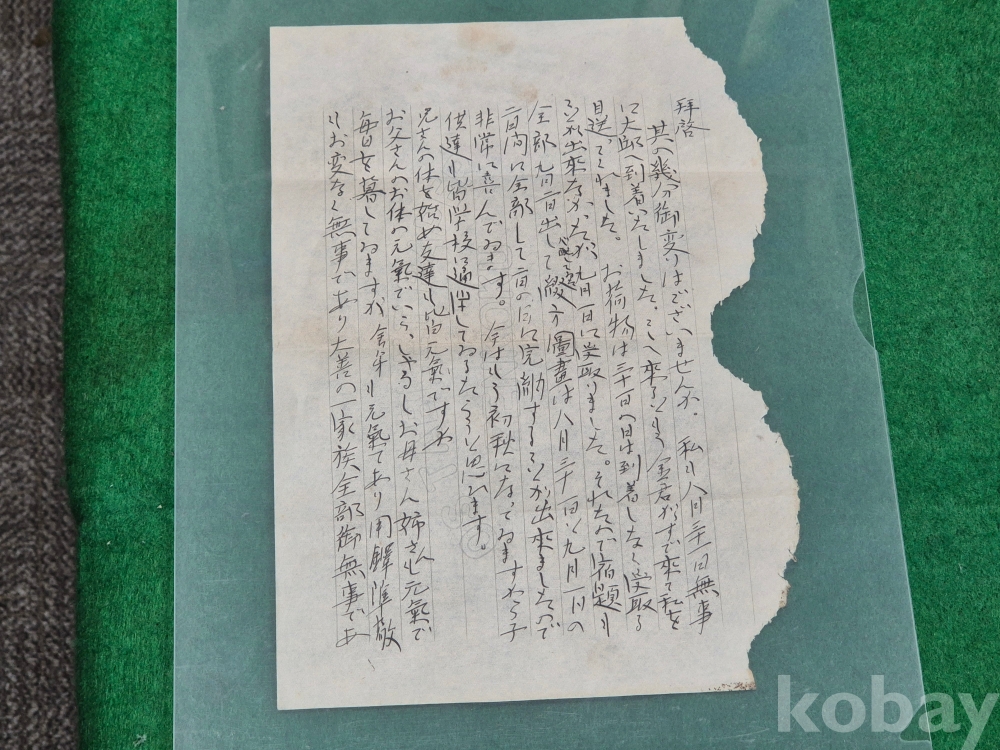 拝啓
其へ幾分御変りはございませんか。 私も八月三十一日無事
に大邱へ到着いたしました。 来る 金君が 来て私を
目送ってくれました。 お荷物は三十日へ日は到着しなく受取る
出来なかったが、九月一日に受取りました。それなので宿題も
全部九月二日出して綴方、圖畫は八月三十一日と九月一日の
二日間に全部して二日の日に完 することが出来ましたので
非常に喜んでゐます。 今はもう初秋になってゐますわ。子
供達も皆学校に通 してゐるだらうと思ひます。
兄さんの体を始め友達も皆元氣ですわ
お父さんのお体の元氣でいらっしゃるしお母さん姉さんも元氣で
毎日を暮してゐますが 今年も元氣であり用解準敬
もお変なく無事であり大善の一家族全部御無事であ
kobay